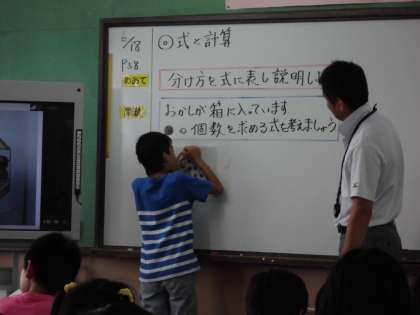 6/18
P58
◎式と計算
めあて
分け方を式に表し説明し
おかしが箱に入っています
の個数を求める式を考えましょう